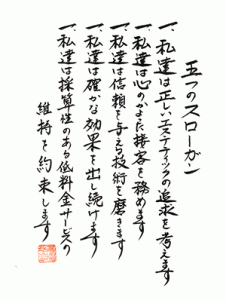 五つのスローガン
一、私達は正しいエステティックの追求を考えます
一、私達は心のこもった接客を務めます
一、私達は信頼を与える技術を磨きます
一、私達は確かな効果を出し続けます
一、私達は採算性のある低料金サービスの
維持を約束します